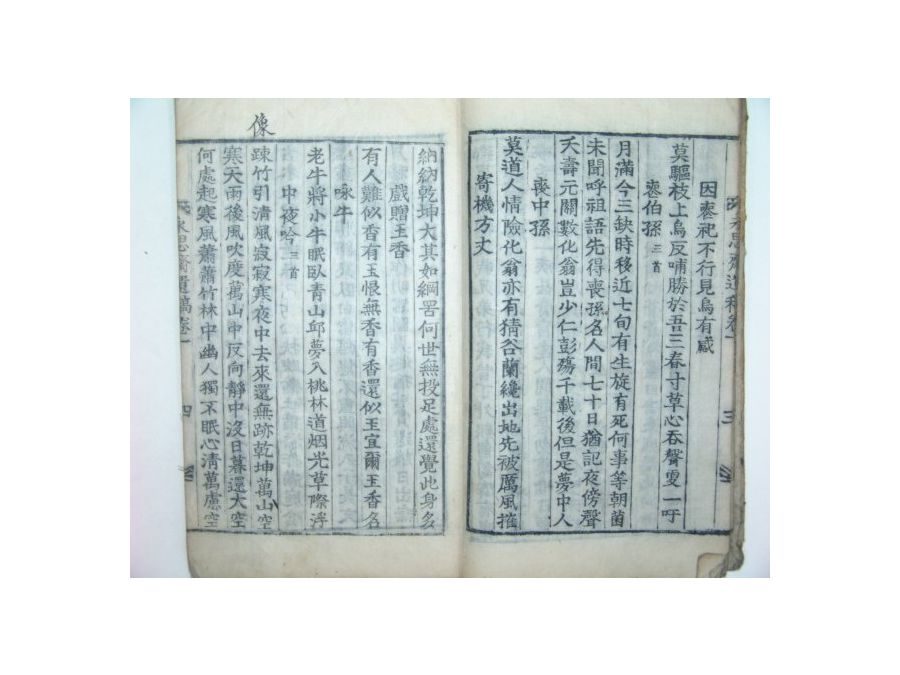 因忝祀不行見烏有感
莫驅枝上烏反哺勝於吾三春寸草心吞聲雯一吁
忝伯孫 三首
月滿今三缺時移近七旬有生旋有死何事等朝菌
未聞呼祖語先得喪孫名人間七十日猶記夜傍聲
夭壽元關數化翁豈少仁彭殤千載後但是夢中人
喪中孫
莫道人情險化翁亦有猜谷蘭纔出地先被厲風摧
寄機方丈
永思齋遺稿卷一 三
納納乾坤大其如網罟何世無投足處還覺此身多
戲贈玉香
有人難似香有玉恨無香有香還似玉宜爾玉香名
咏牛
老牛將小牛眠臥青山邱夢入桃林道烟光草際浮
中夜吟 三首
踈竹引清風寂寂寒夜中去來還無跡乾坤萬山空
寒天雨後風吹度萬山中反向靜中沒日暮還大空
何處起寒風蕭蕭竹林中幽人獨不眠心淸萬慮空
永思齋遺稿卷一 四
像